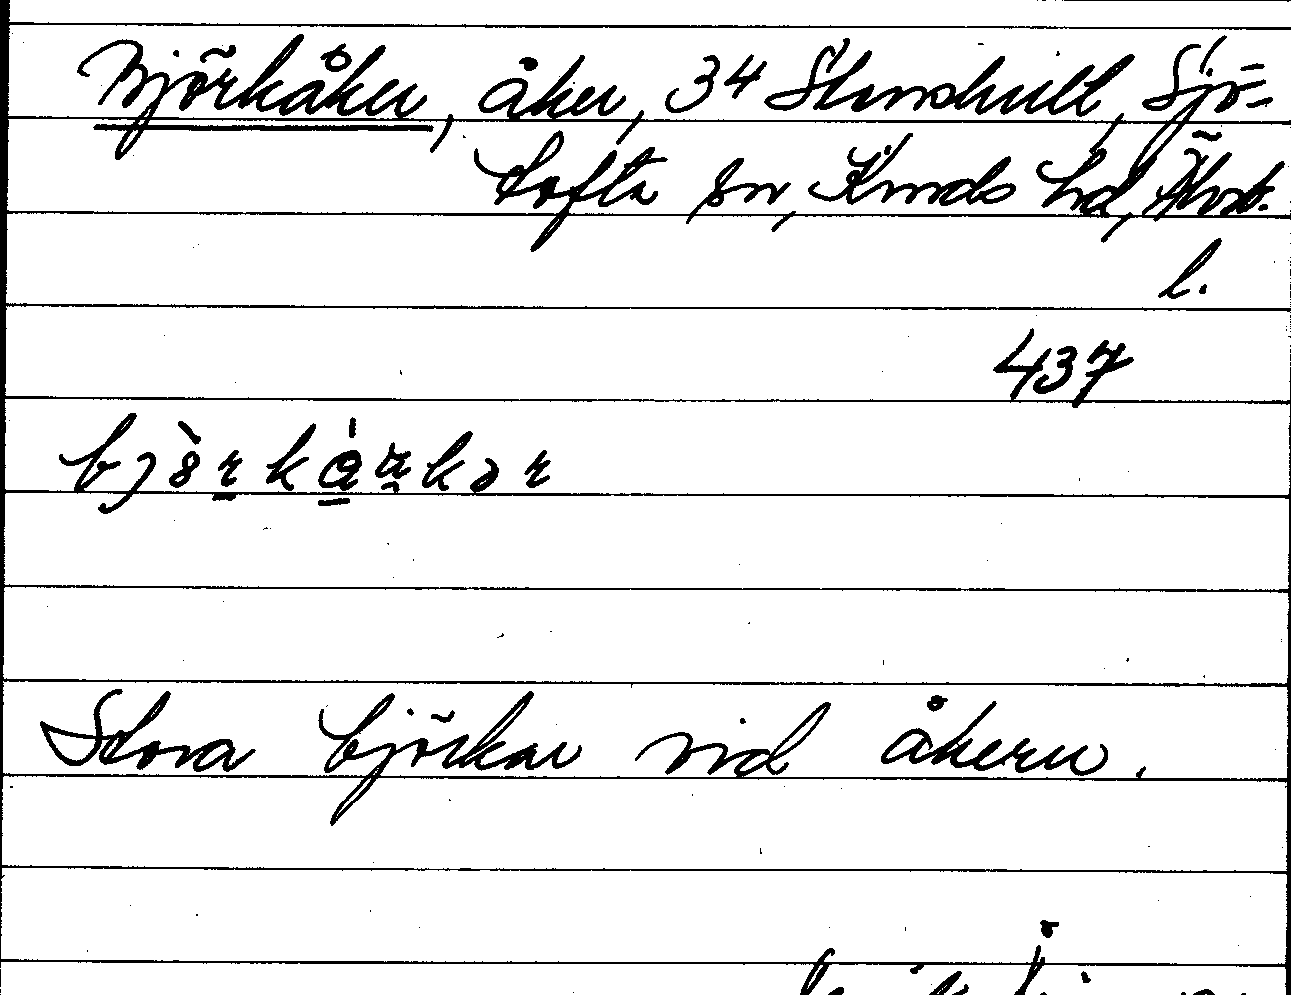 Björkåker, åker, 34 Stomshult, Sjö-
tofta sn, Kinds hd, Älvsb.
l.
437
Stora björkar vid åkern.